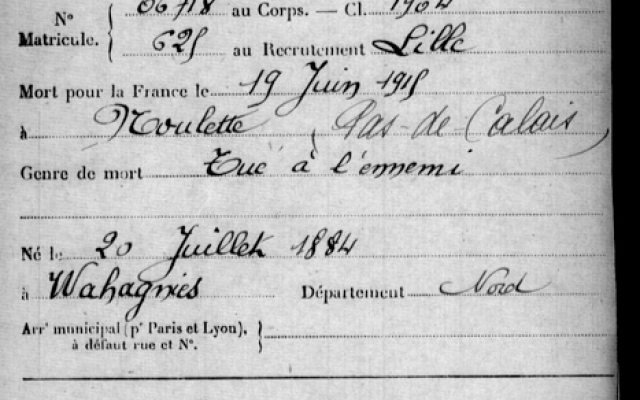 N° 06718 au Corps. — Cl. 1904
Matricule. 625 au Recrutement Lille
Mort pour la France le 19 Juin 1915
à Noulette (Pas-de-Calais)
Genre de mort Tué à l'ennemi
Né le 20 Juillet 1884
à Wahagnies Département Nord
Arrt municipal (pr Paris et Lyon),
à défaut rue et N°.